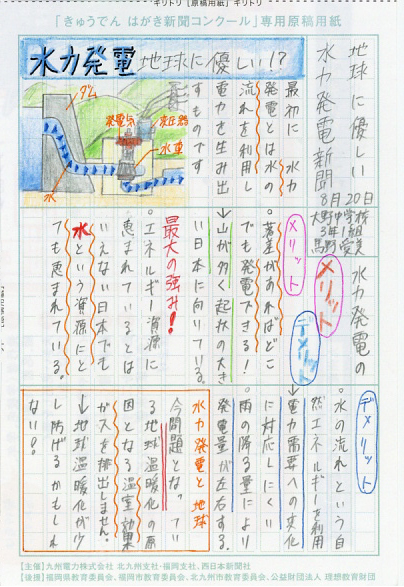 キリトリ【原稿用紙】キリトリ
「きゅうでん はがき新聞コンクール」専用原稿用紙
地球に優しい
水力発電新聞
8月20日
大野中学校
3年1組
馬野愛美
水力発電 地球に優しい!?
ダム
発電気
変圧器
水車
水
最初に 水力
発電とは水の
流れを利用し
電力を生み出
すものです
水力発電の
メリット
デメリット
メリット
。落差があればどこ
でも発電できる!
↓山が多く起状の大き
い日本に向いている。
最大の強み!
。エネルギー資源に
恵まれているとは
いえない日本でも
水という資源にと
ても恵まれている。
デメリット
。水の流れという自
然エネルギーを利用
↓電力需要への変化
に対応しにくい
。雨の降る量により
発電量が左右する。
水力発電と地球
今問題となってい
る地球温暖化の原
因となる温室効果
ガスを排出しません。
↓地球温暖化が少
し防げるかもしれ
ない!。
【主催】九州電力株式会社 北九州支社・福岡支社、西日本新聞社
【後援】福岡県教育委員会、福岡市教育委員会、北九州市教育委員会、公益財団法人 理想教育財団